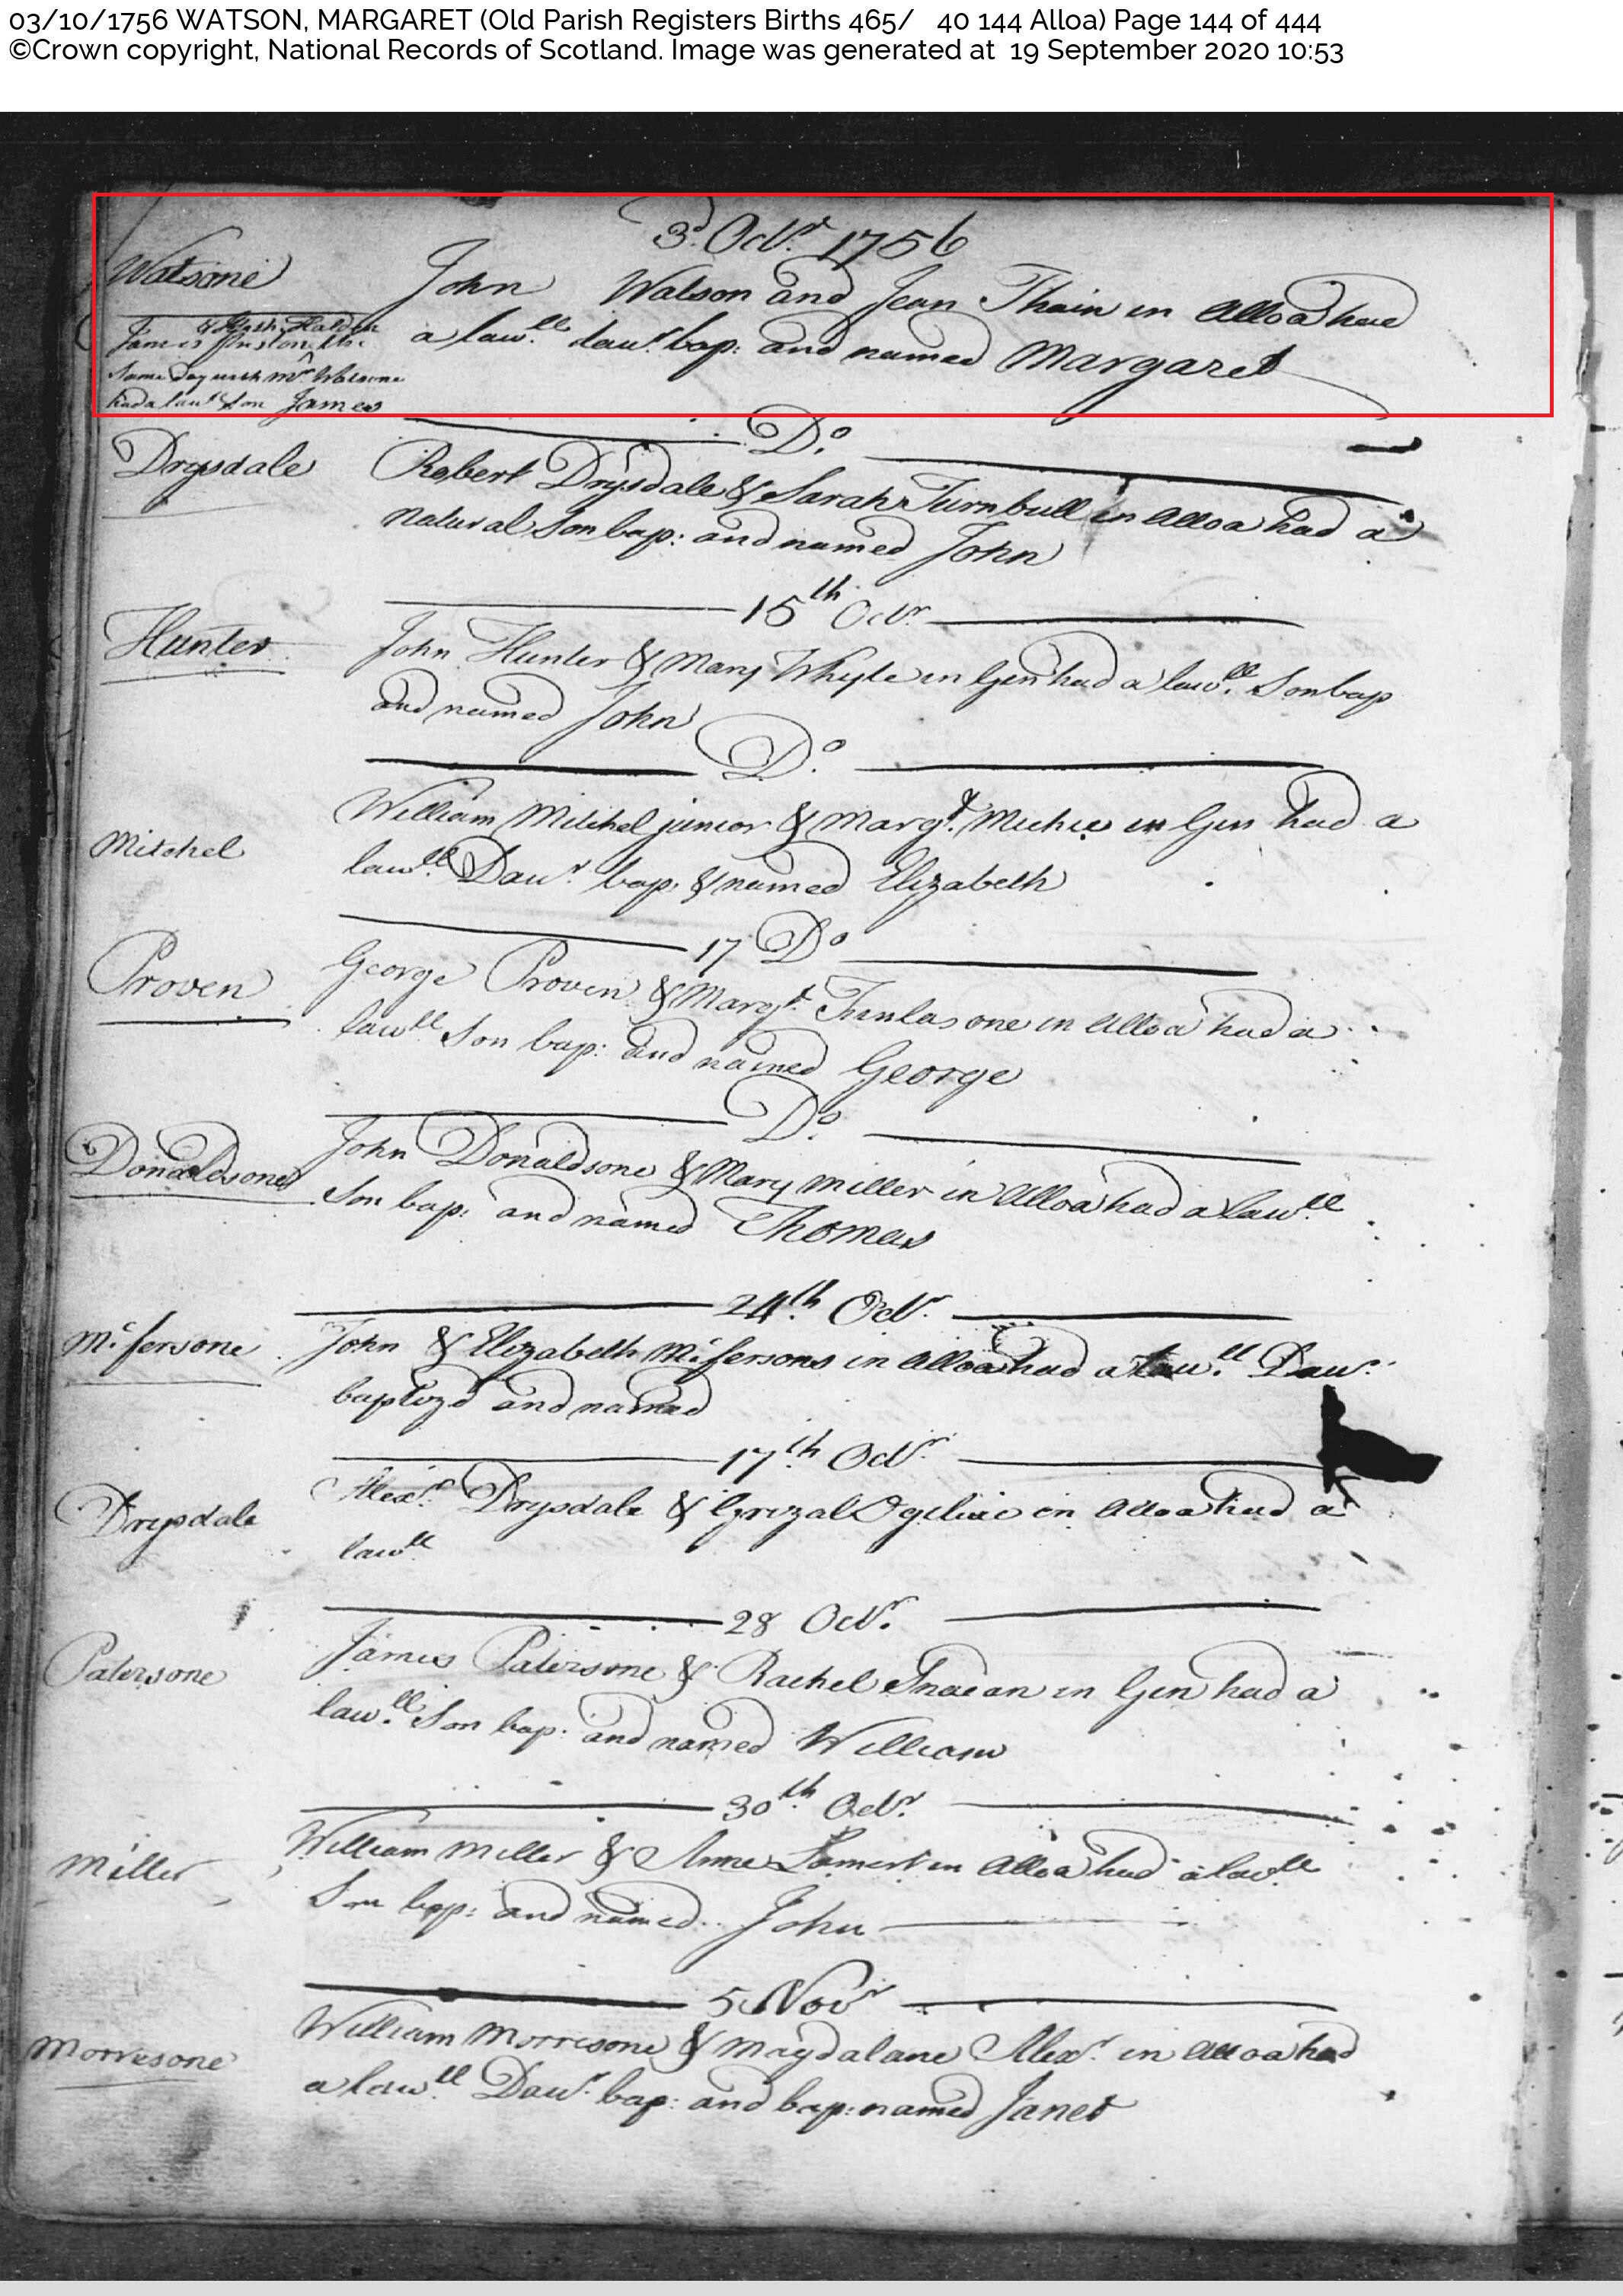 03/10/1756 WATSON, MARGARET (Old Parish Registers Births 465/ 40 144 Alloa) Page 144 of 444
©Crown copyright, National Records of Scotland. Image was generated at 19 September 2020 10:53
3d. Octr. 1756
Watsone
John Watson and Jean Thain in Alloa had
a lawll. dawr. bap: and named Margaret
James
same day with Mr Watsone
had a lawl. son James
Do.
Drysdale
Robert Drysdale & Sarah Turnbull in Alloa had a
natural Son bap: and named John
15th Octr.
Hunter
John Hunter & Mary Whyte in Gen had a lawll. Son bap
and named John
Do.
Mitchel
William Mitchel junior & Margt. Michie in Gen had a
lawll. Dawr. bap: & named Elizabeth
17 Do
Proven
George Proven & Margt. Finlasone in Alloa had a
lawll Son bap: and named George
Do.
Donaldsone
John Donaldsone & Mary Miller in Alloa had a lawll
Son bap: and named Thomas
24th. Octr.
Mc.fersone
John & Elizabeth Mc.fersons in Alloa had a lawll. Dawr.
baptizd and named
17th Octr.
Drysdale
Alexr. Drysdale & Grizal Ogilvie in Alloa had a
lawll
28 Octr.
Patersone
James Patersone & Rachel in Gen had a
lawll. Son bap: and named William
30th. Octr.
Miller
William Miller & Anne in Alloa had a lawll
Son bap: and named John
5 Novr
Morresone
William Morresone & Magdalane Alexr. in Alloa had
a lawll Dawr. bap: and bap: named Janet